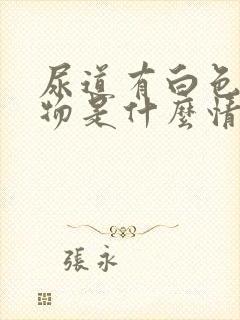 尿道有白色
物是什麼情
張永